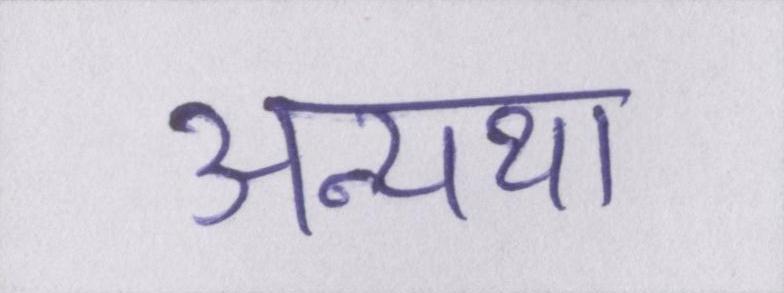 अन्यथा